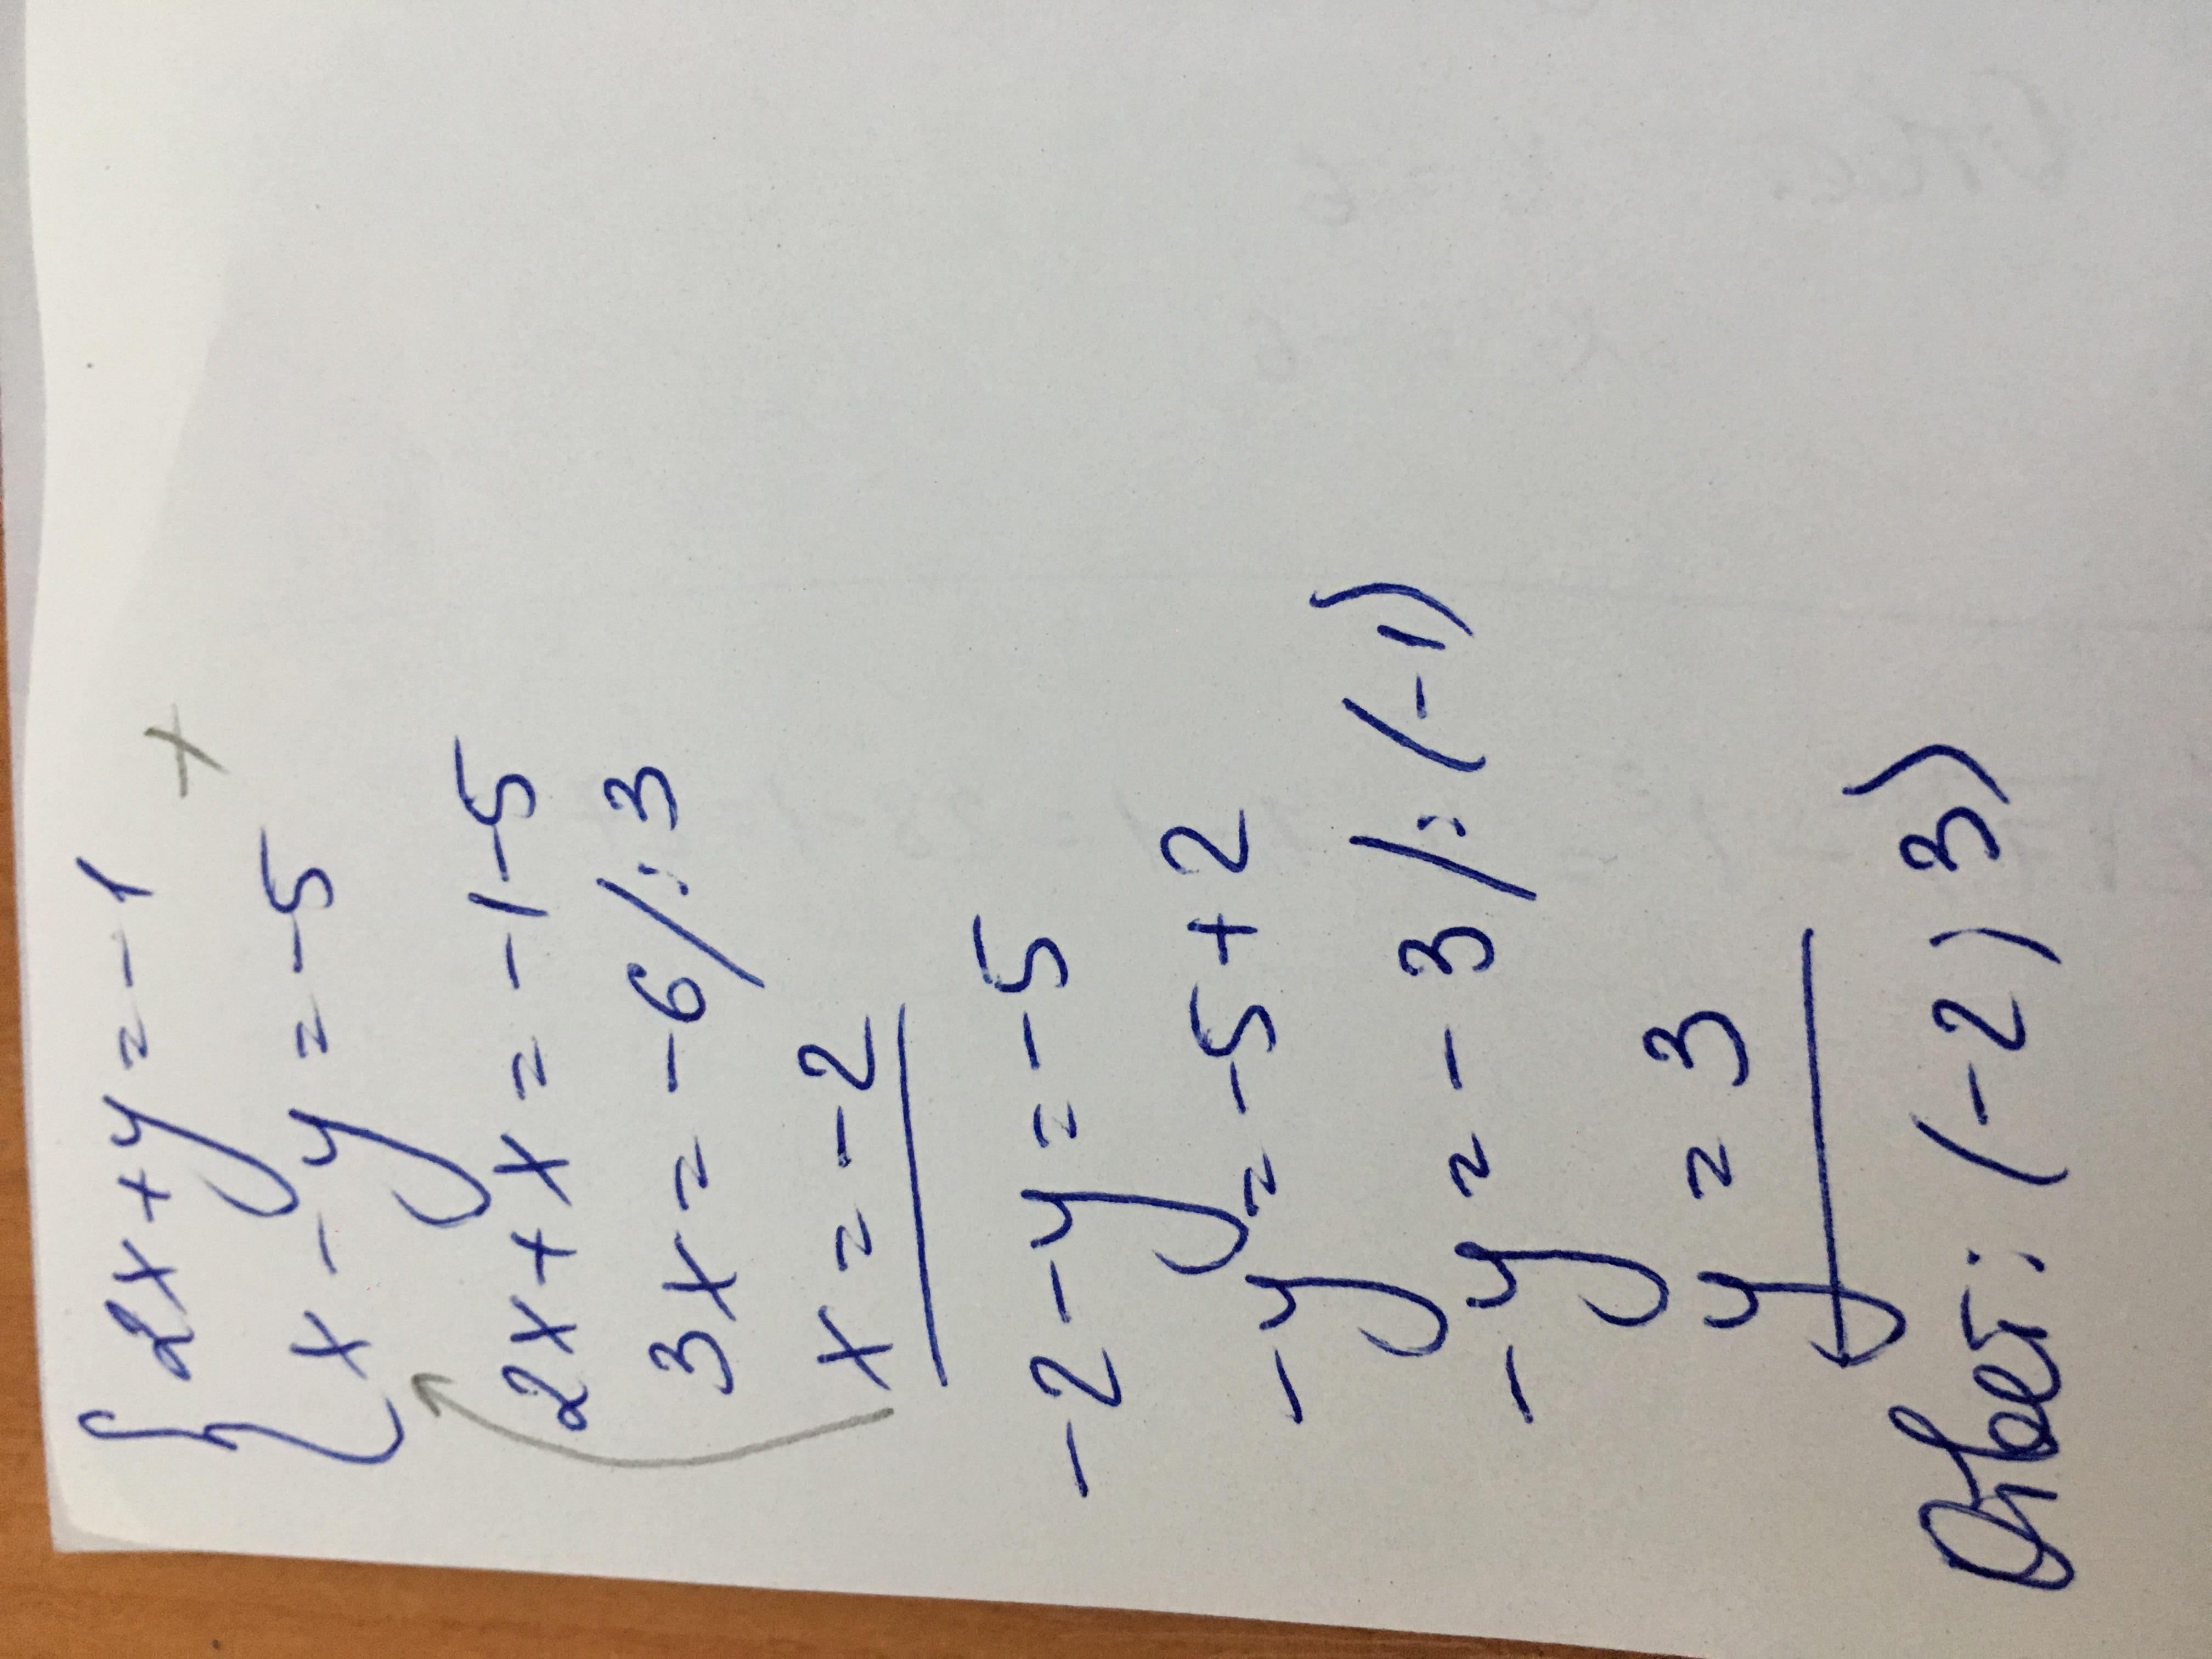 { 2x + y = -1 +
x - y = -5
2x + x = -1 -5
3x = -6 /:3
x = -2
-2 - y = -5
-y = -5 + 2
-y = -3 /: (-1)
y = 3
Ответ: (-2) 3)